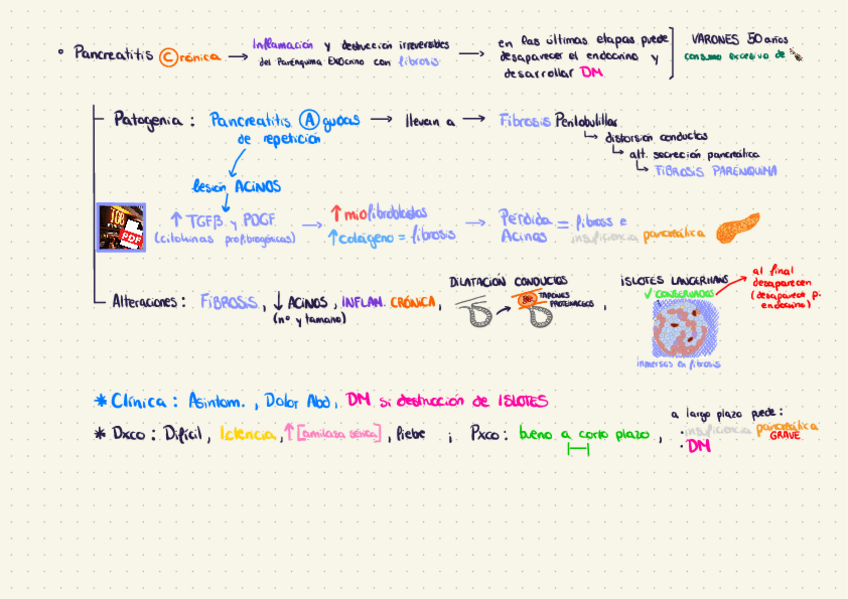 Pancreatitis Crónica → Inflamación y destrucción irreversibles
del Parénquima Exócrino con fibrosis →
en las últimas etapas puede
desaparecer el endocrino y
desarrollar DM
VARONES 50 años
consumo excesivo de
Patogenia: Pancreatitis Agudas → llevan a → Fibrosis Perilobulillar
de repetición
↳ distorsión conductos
↳ alt. secreción pancreática
↳ FIBROSIS PARENQUIMA
lesión ACINOS
108
PDF
↑ TGFβ y PDGF
(citokinas profibrogénicas)
→ ↑ miofibroblastos
↑ colágeno = fibrosis
→ Pérdida = fibrosis e
Acinos insuficiencia pancreática
Alteraciones: FIBROSIS, ↓ ACINOS, INFLAM. CRÓNICA,
(nº y tamaño)
DILATACIÓN CONDUCTOS
TAPONES
PROTEINACEOS
,
ISLOTES LANGERHANS
✓ CONSERVADOS
inmersos en fibrosis
al final
desaparecen
(desaparece p.
endocrino)
* Clínica: Asintom., Dolor Abd, DM si destrucción de ISLOTES
* Dxco: Difícil, Ictericia, ↑[amilasa sérica], fiebe ; Pxco: bueno a corto plazo,
a largo plazo puede:
· insuficiencia pancreática
GRAVE
· DM